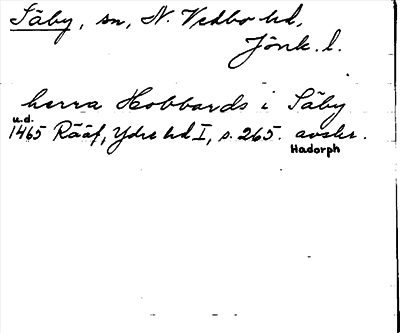 Säby, sn, N. Vedbo hd,
Jönk. l.
herra Hobbards i Säby
u.d.
1465 Rääf, Ydre hd I, s. 265. avskr.
Hadorph